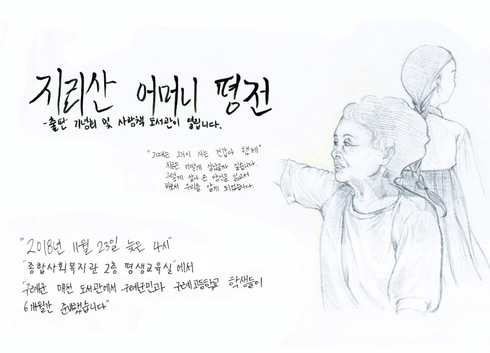 지리산 어머니 평전
-출판 기념회 및 사람책 도서관이 열립니다.
"그때는 그게 사는 건갑다 했제"
지금은 어떻게 살았을까 싶습니다.
그렇게 살아 온 당신을 읽고서
비로서 우리를 알게 되었습니다.
"2018년 11월 23일 늦은 4시"
"종합사회복지관 2층 평생교육실"에서
"구례군 매천 도서관에서 구례군민과 구례고등학교 학생들이
6개월간 준비했습니다"